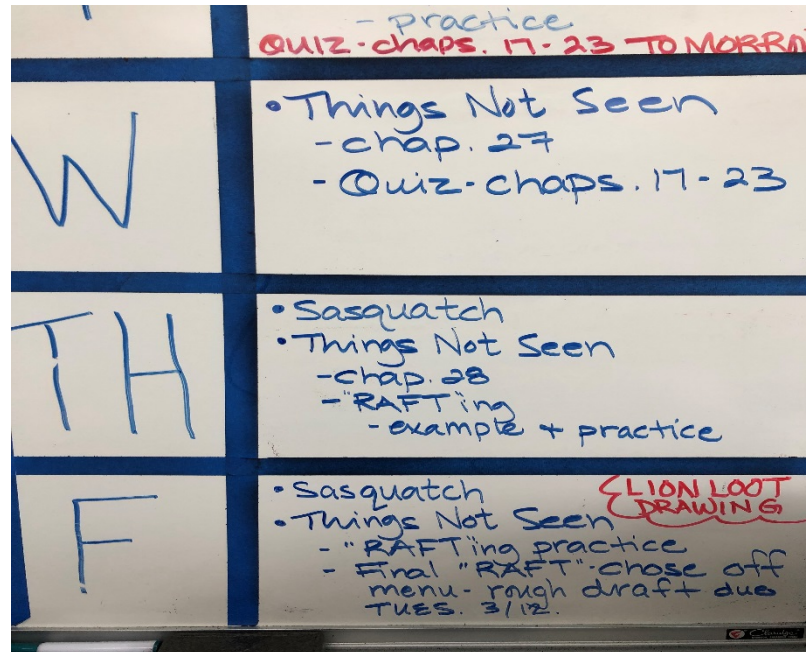 - practice
Quiz-chaps. 17-23 TOMORRO
W
• Things Not Seen
- chap. 27
- Quiz-chaps. 17-23
TH
• Sasquatch
• Things Not Seen
- chap. 28
- "RAFT"ing
- example + practice
F
• Sasquatch
LION LOOT
DRAWING
• Things Not Seen
- "RAFTing practice
- Final "RAFT"-chose off
menu- rough draft due
TUES. 3/12.